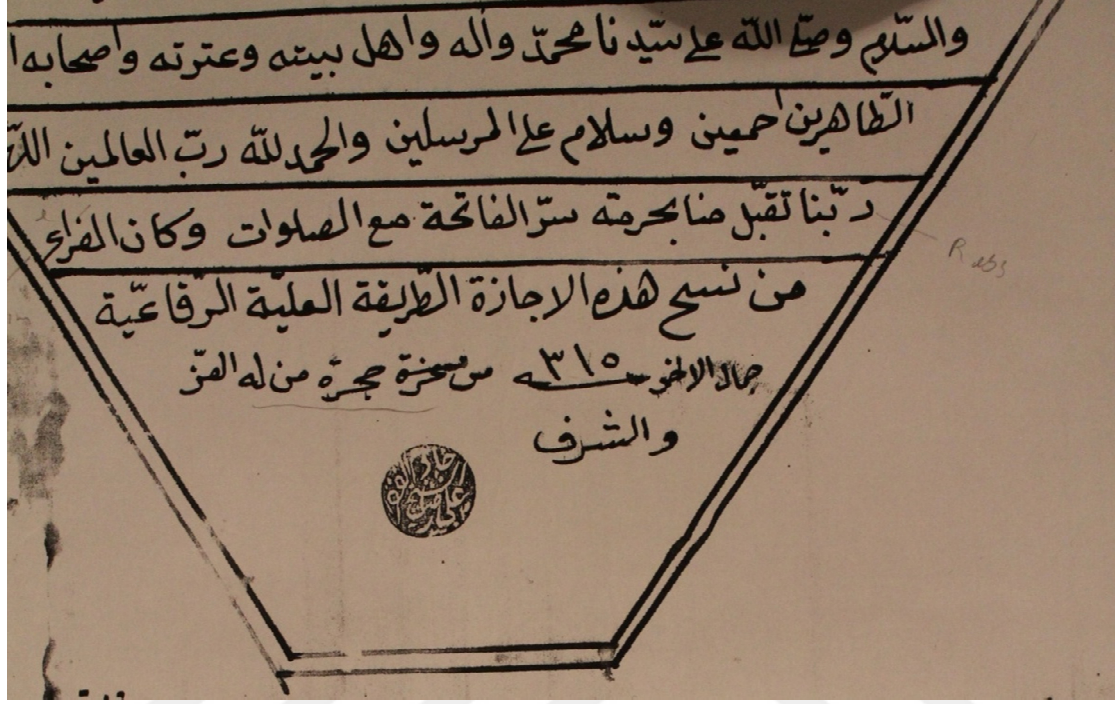 والسّلام وصلّى اللّه على سيّدنا محمّد واله واهل بيته وعترته واصحابه
الطّاهرين اجمعين وسلام على المرسلين والحمد للّه ربّ العالمين
ربّنا تقبّل منا بحرمته سرّ الفاتحة مع الصلوات وكان الفراغ
من نسخ هذه الاجازة الطّريقة العليّة الرّفاعيّة
٣١٥ من هجرة من له العزّ
والشرف